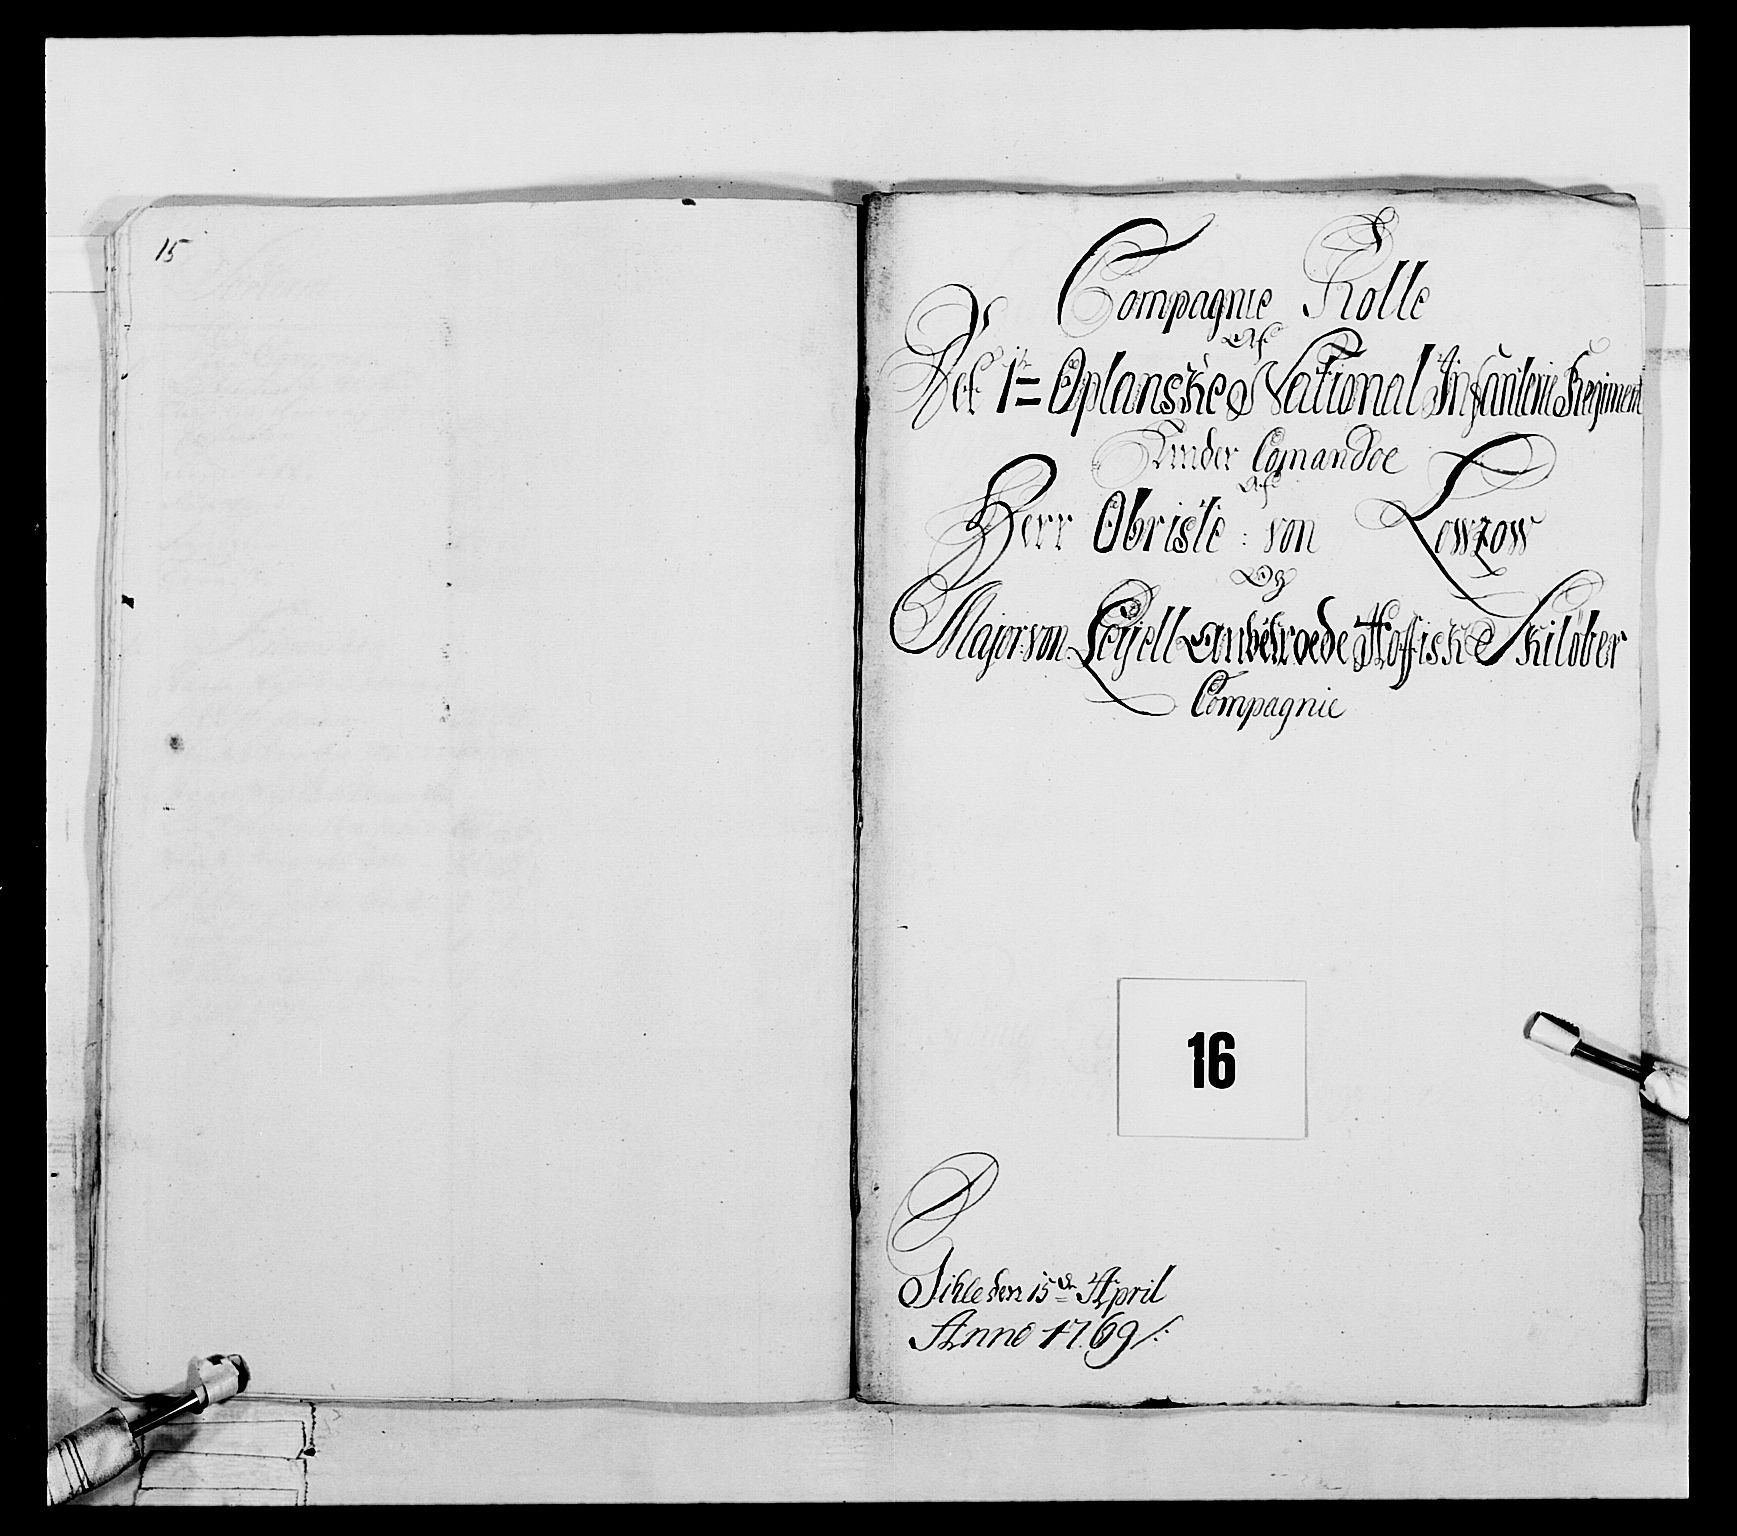 15
Compagnie Rolle
Af
Det 1te Oplanske National Infanterie Regiment
Under Comandoe
Af
Herr Obriste: von Lowzow
Og
Major: von Leÿell Anbetroede Hoffiske Skilöber
Compagnie
16
den 15de April
Anno 1769